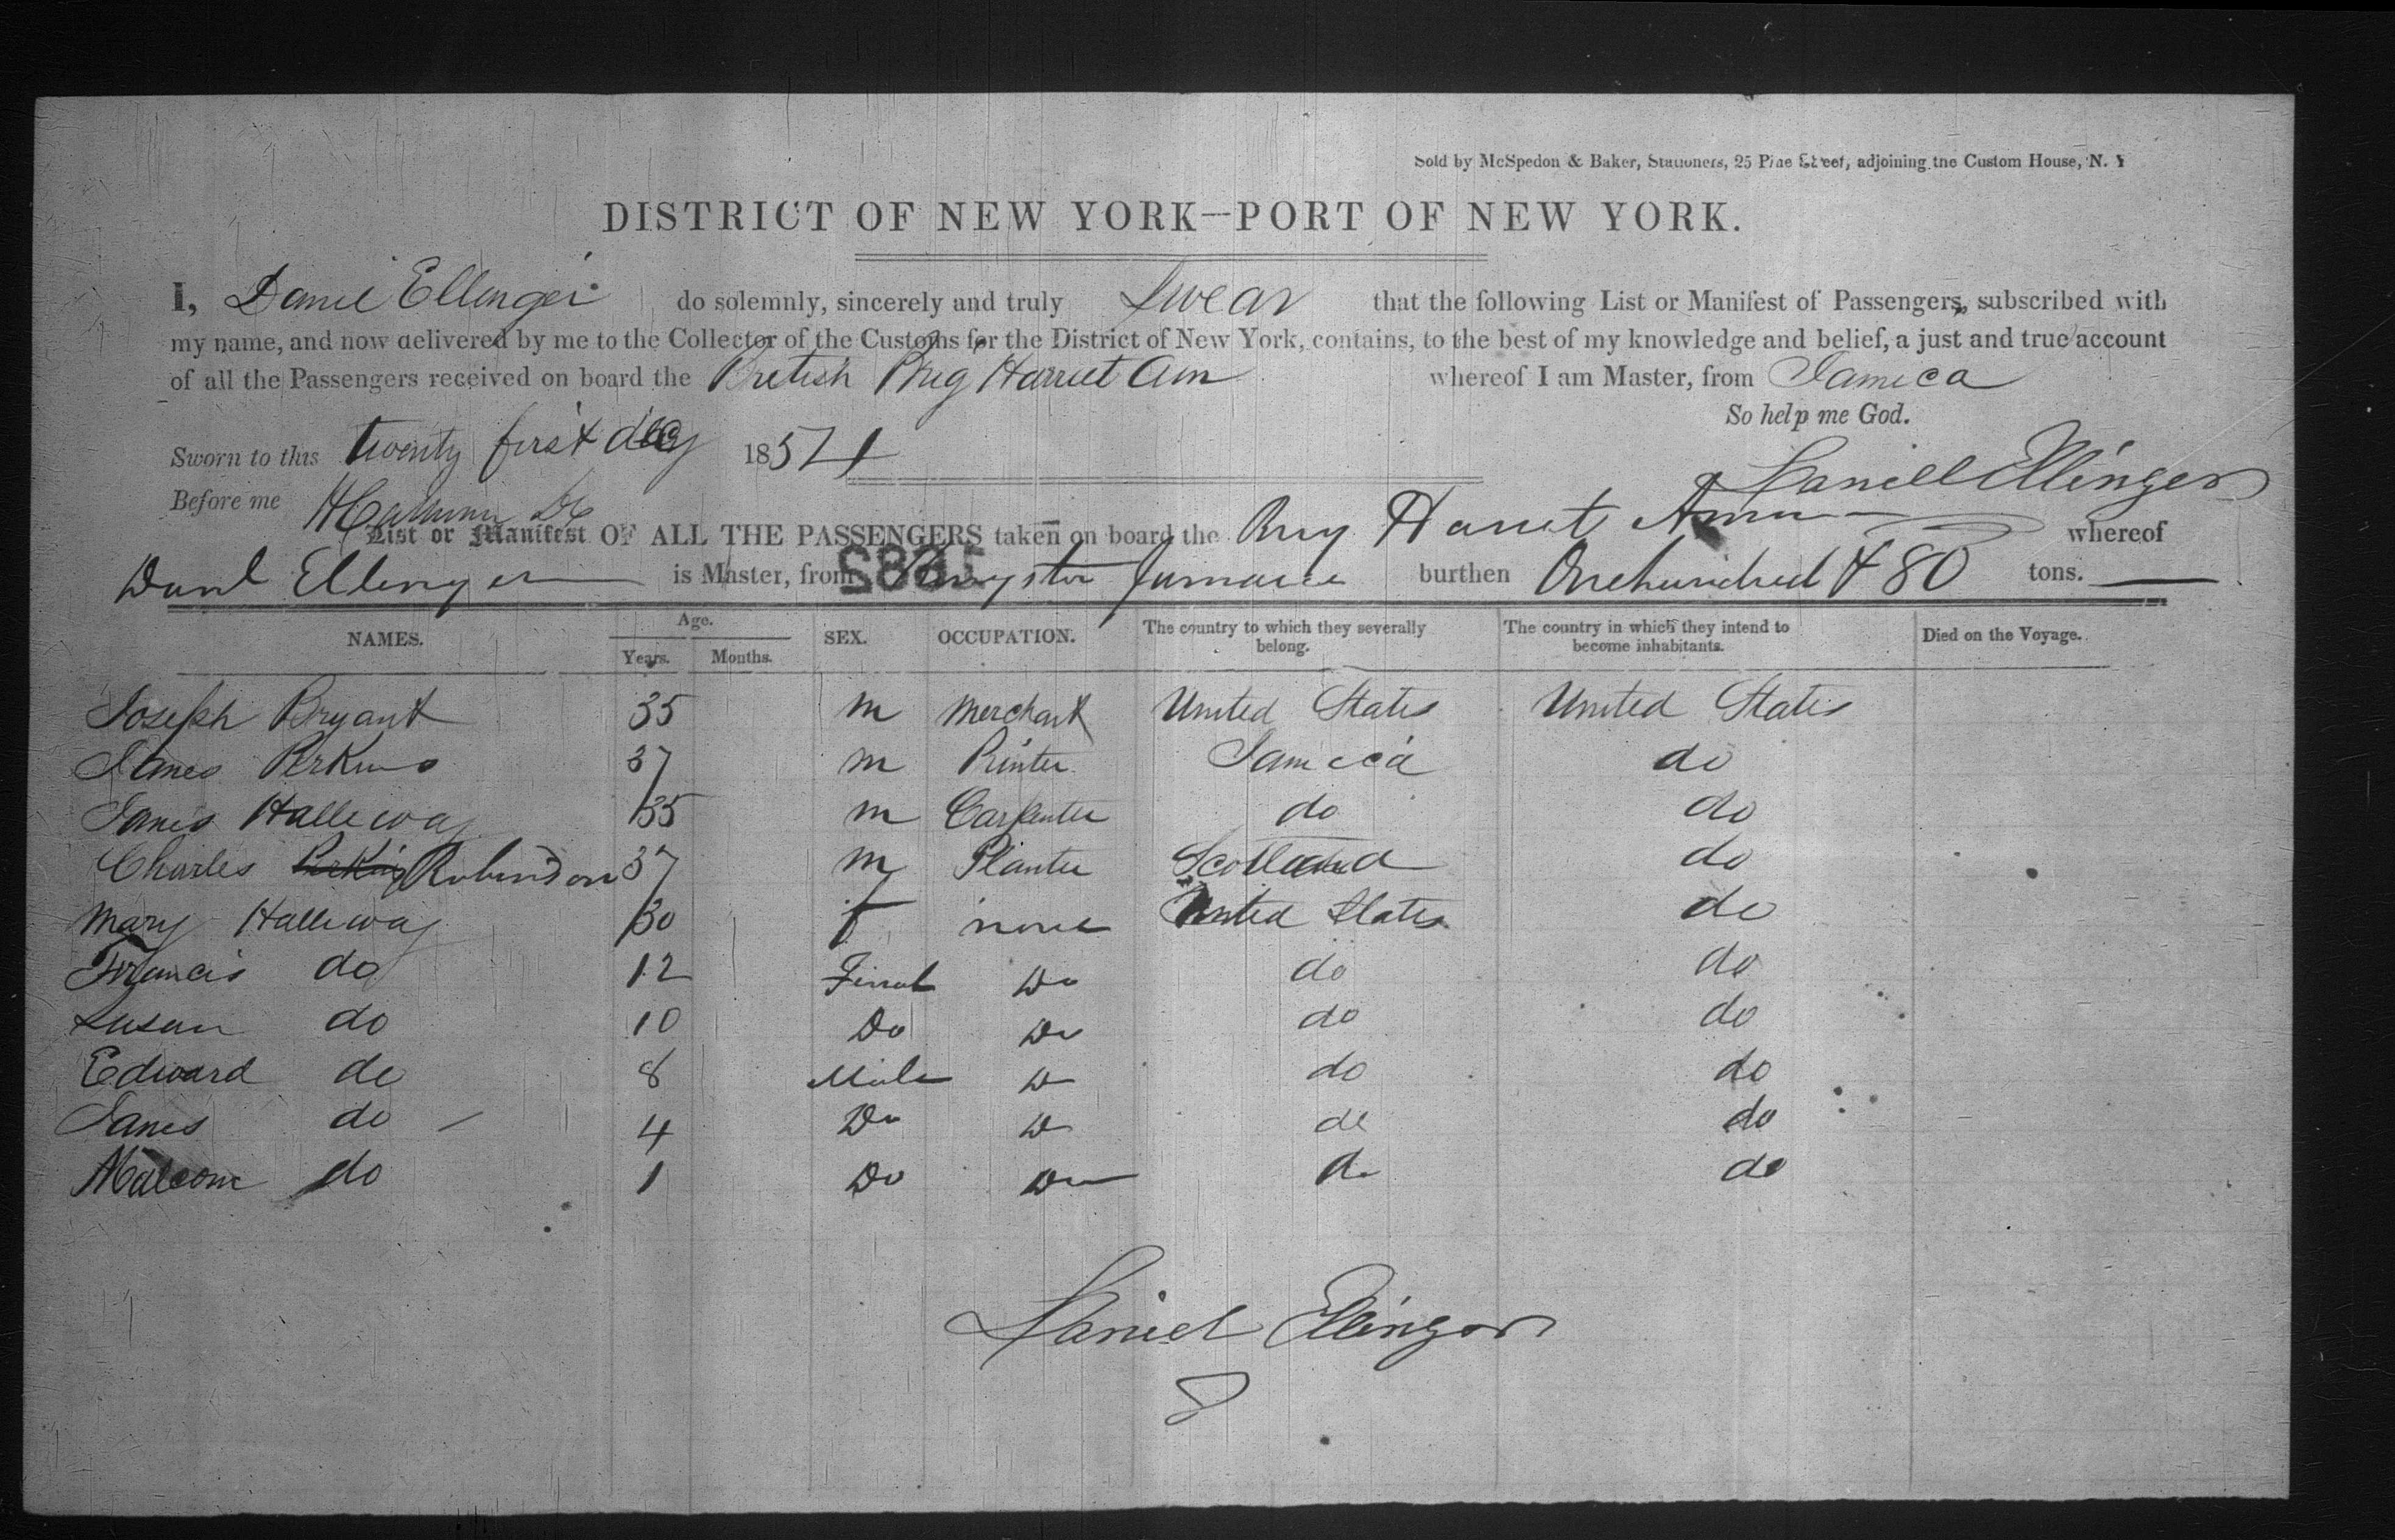 Sold by McSpedon & Baker, Stationers, 25 Pine Street, adjoining the Custom House, N. Y
DISTRICT OF NEW YORK—PORT OF NEW YORK.
I, Daniel Ellenger do solemnly, sincerely and truly Swear that the following List or Manifest of Passengers, subscribed with
my name, and now delivered by me to the Collector of the Customs for the District of New York, contains, to the best of my knowledge and belief, a just and true account
of all the Passengers received on board the British Brig Harriet Ann whereof I am Master, from Jamica
So help me God.
Sworn to this twenty first day 1854
Daniell Ellinger
Before me
List or Manifest OF ALL THE PASSENGERS taken on board the Brig Harriet Ann whereof
Danl Ellenger is Master, from Jamaica burthen One hundred & 80 tons.
NAMES. Age. Years. Months. SEX. OCCUPATION. The country to which they severally belong. The country in which they intend to become inhabitants. Died on the Voyage.
Joseph Bryant 35 m Merchant United States United States
James Perkins 37 m Printer Jamica do
James Halleway 35 m Carpenter do do
Charles Perkins Robindson 37 m Planter Scotland do
Mary Halleway 30 f none United States do
Francis do 12 Femal Do do do
Susan do 10 Do Do do do
Edward do 8 Male Do do do
James do 4 Do Do do do
Malcom do 1 Do Do do do
Daniel Ellinger